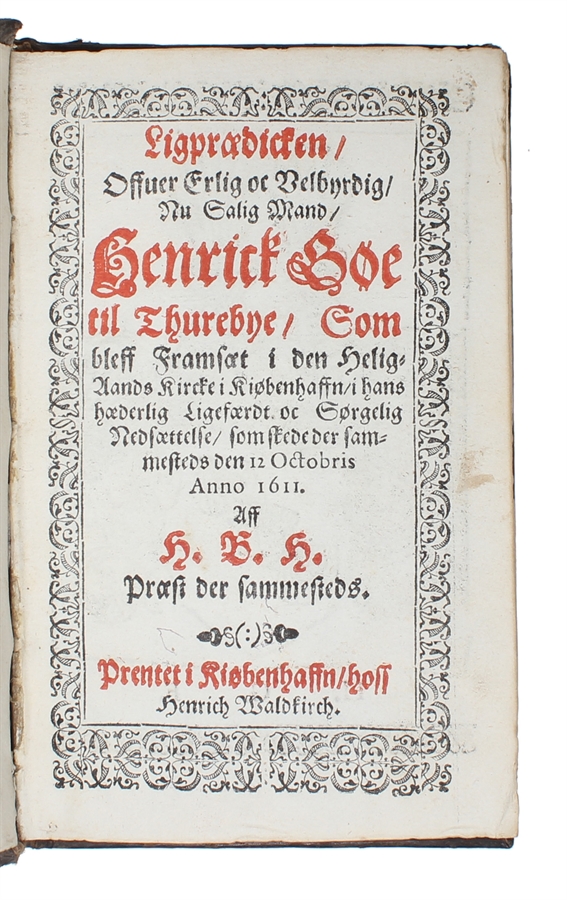 Ligprædicken/
Offuer Erlig oc Velbyrdig/
Nu Salig Mand/
Henrick Gøe
til Thurebye/ Som
bleff Framsæt i den Helig-
Aands Kircke i Kiøbenhaffn/i hans
hæderlig Ligefærdt. oc Sørgelig
Nedsættelse/ som skede der sam-
mesteds den 12 Octobris
Anno 1611.
Aff
H. B. H.
Præst der sammesteds.
§(:)§
Prentet i Kiøbenhaffn/hoss
Henrich Waldkirch.